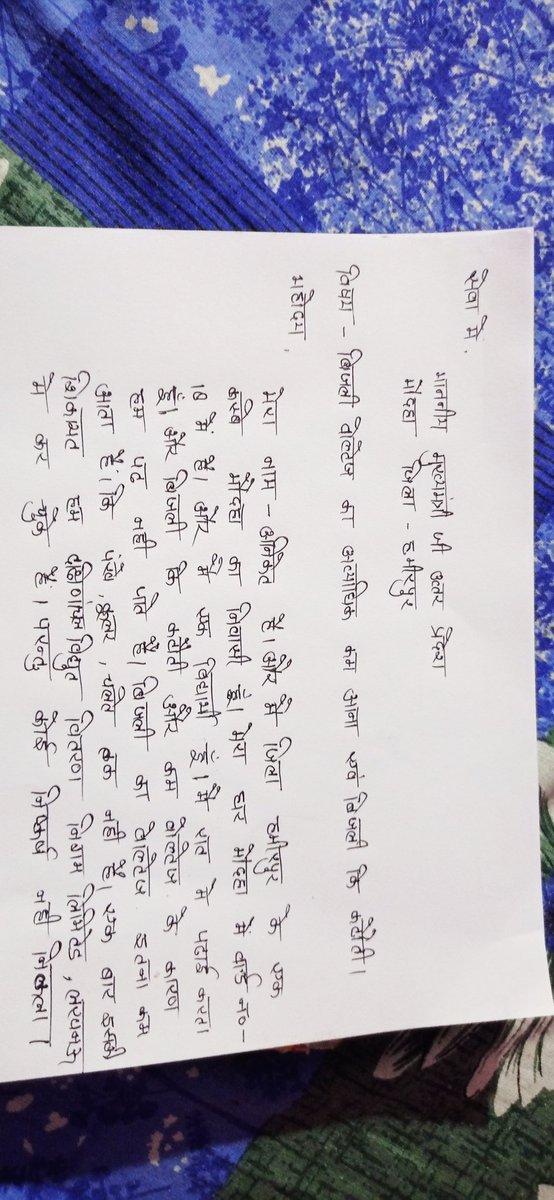 सेवा में,
माननीय मुख्यमंत्री जी उत्तर प्रदेश
मौदहा जिला - हमीरपुर
विषय - बिजली वोल्टेज का अत्याधिक कम आना एवं बिजली कि कटौती।
महोदय,
मेरा नाम - अनिकेत है। और मैं जिला हमीरपुर के एक
कस्बे मौदहा का निवासी हूं। मेरा घर मौदहा में वार्ड न०-
10 में है। और मैं एक विद्यार्थी हूं। मैं रात में पढ़ाई करता
हूं। और बिजली कि कटौती और कम वोल्टेज के कारण
हम पढ़ नही पाते हैं। बिजली का वोल्टेज इतना कम
आता है। कि पंखे, कूलर, चलते तक नही हैं। एक बार इसकी
शिकायत हम दक्षिणांचल विद्युत वितरण निगम लिमिटेड, लखनऊ
में कर चुके हैं। परन्तु कोई निष्कर्ष नही निकला।